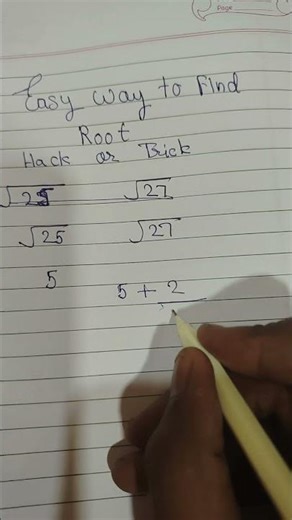 Page
Easy way to Find
Root
Hack or Trick
√25 √27
√25 √27
5
5 + 2